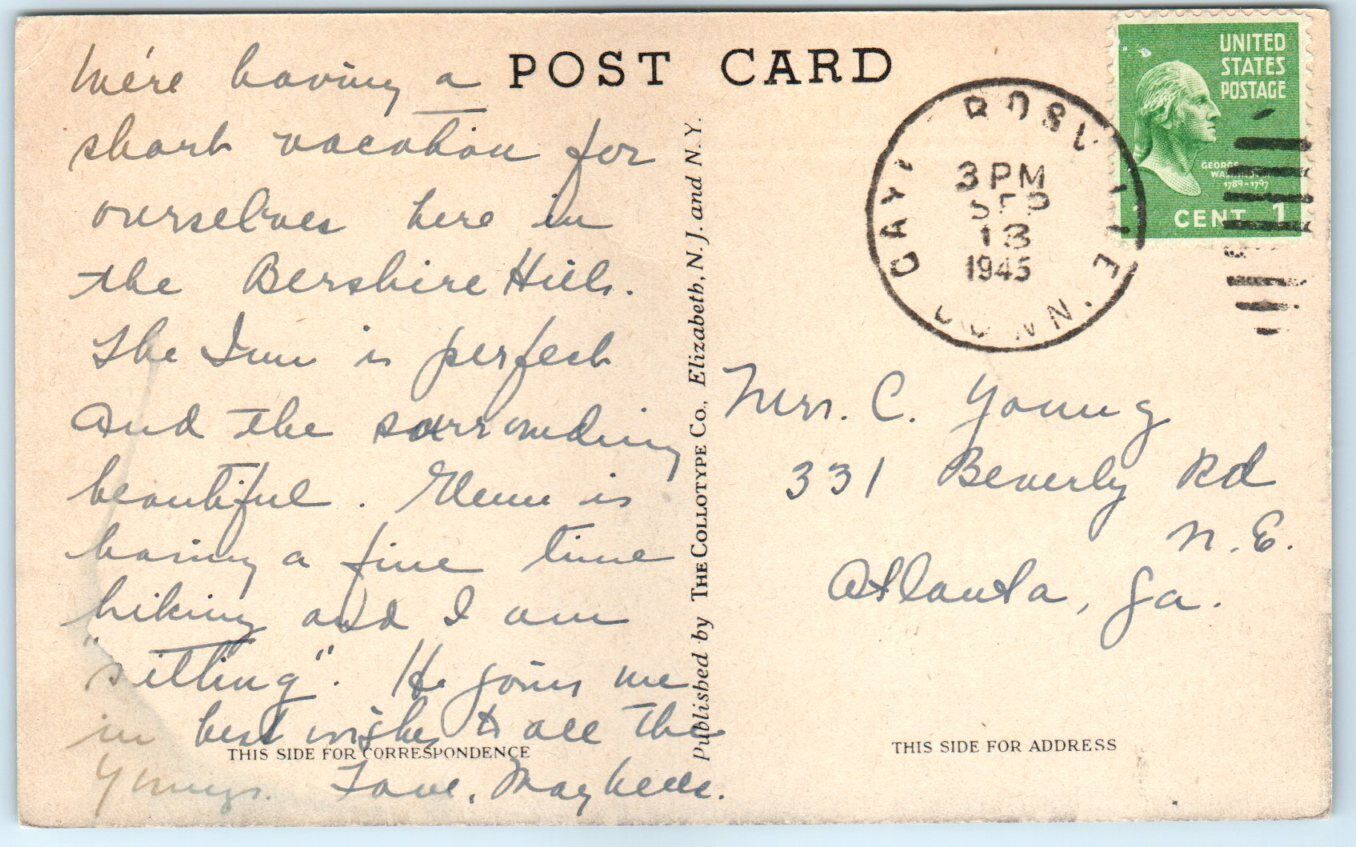 POST CARD
We're having a
short vacation for
ourselves here in
the Bershire Hills.
The Inn is perfect
and the surrounding
beautiful. Glenn is
having a fine time
hiking and I am
"sitting". He joins me
in best wishes to all the
Youngs. Love, Maybelle.
THIS SIDE FOR CORRESPONDENCE
Published by THE COLLOTYPE CO., Elizabeth, N. J. and N. Y.
GAYLORDSVILLE
CONN.
3 PM
SEP
13
1945
UNITED
STATES
POSTAGE
GEORGE
WASHINGTON
1789-1797
1 CENT 1
Mrs. C. Young
331 Beverly Rd
N.E.
Atlanta, Ga.
THIS SIDE FOR ADDRESS